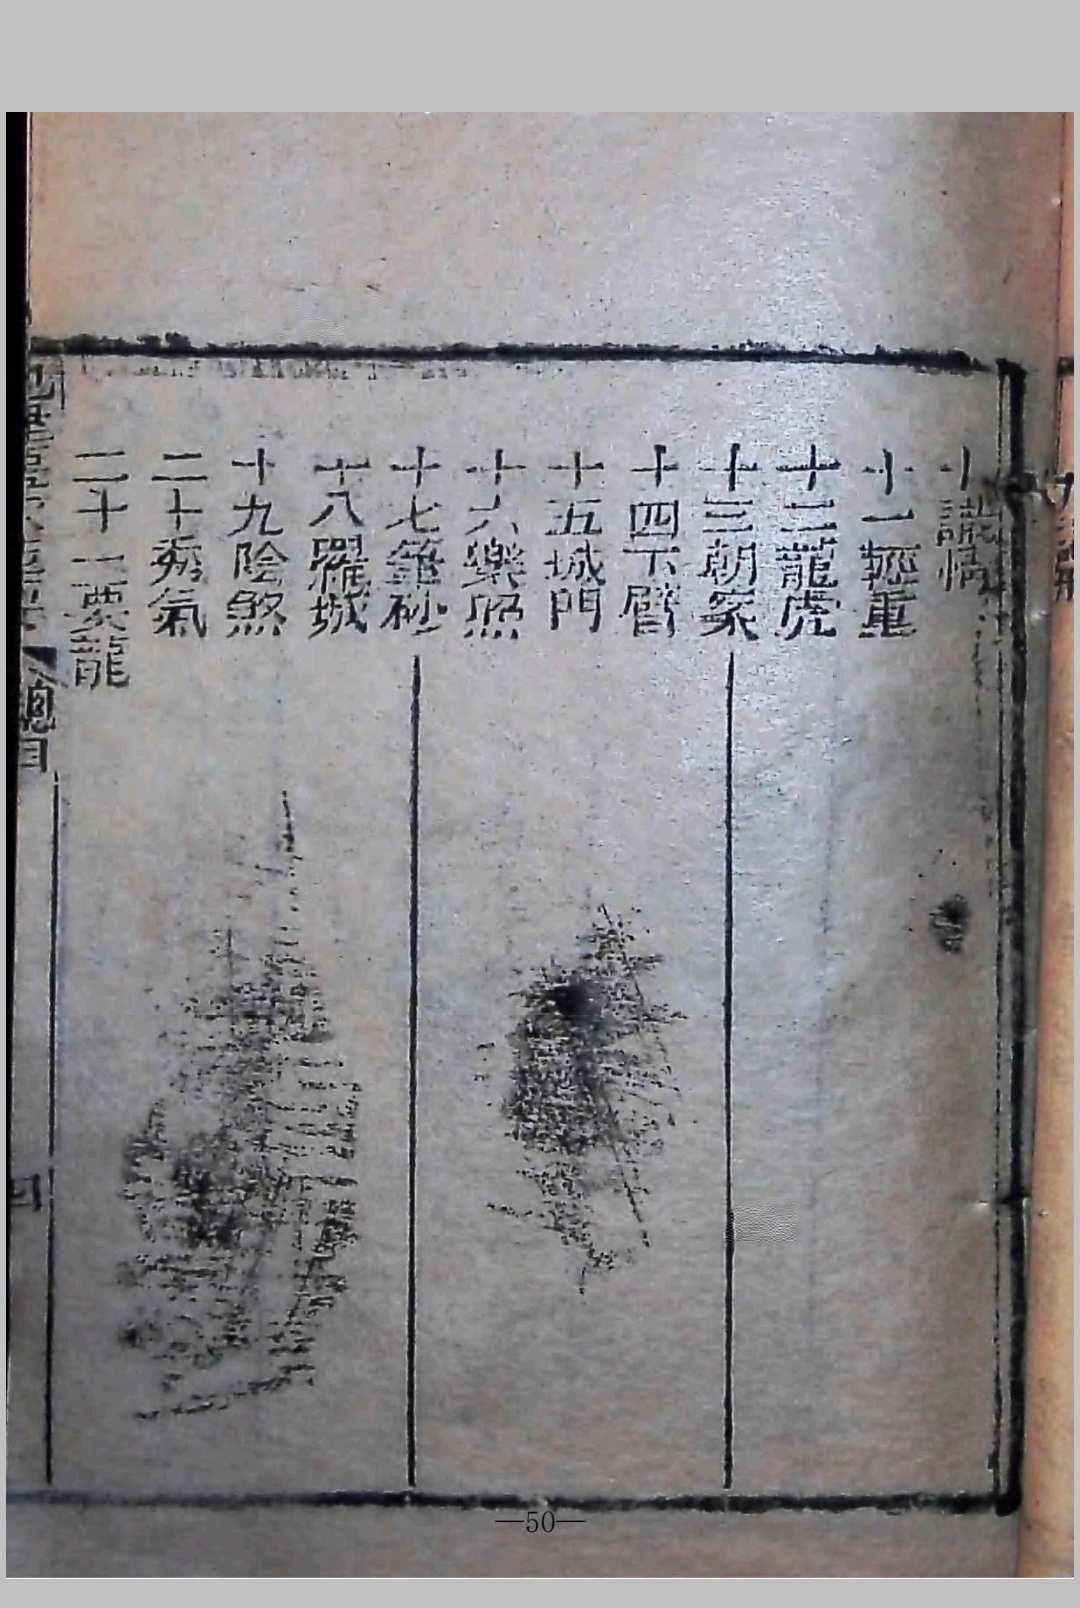 十 情
十一輕重
十二龍虎
十三朝案
十四下臂
十五城門
十六樂照
十七龜砂
十八羅城
十九陰煞
二十秀氣
二十一要龍
總目
四
—50—